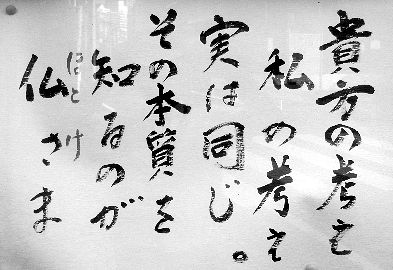 貴方の考え
私の考え
実は同じ。
その本質を
知るのが
仏さま
ほとけ